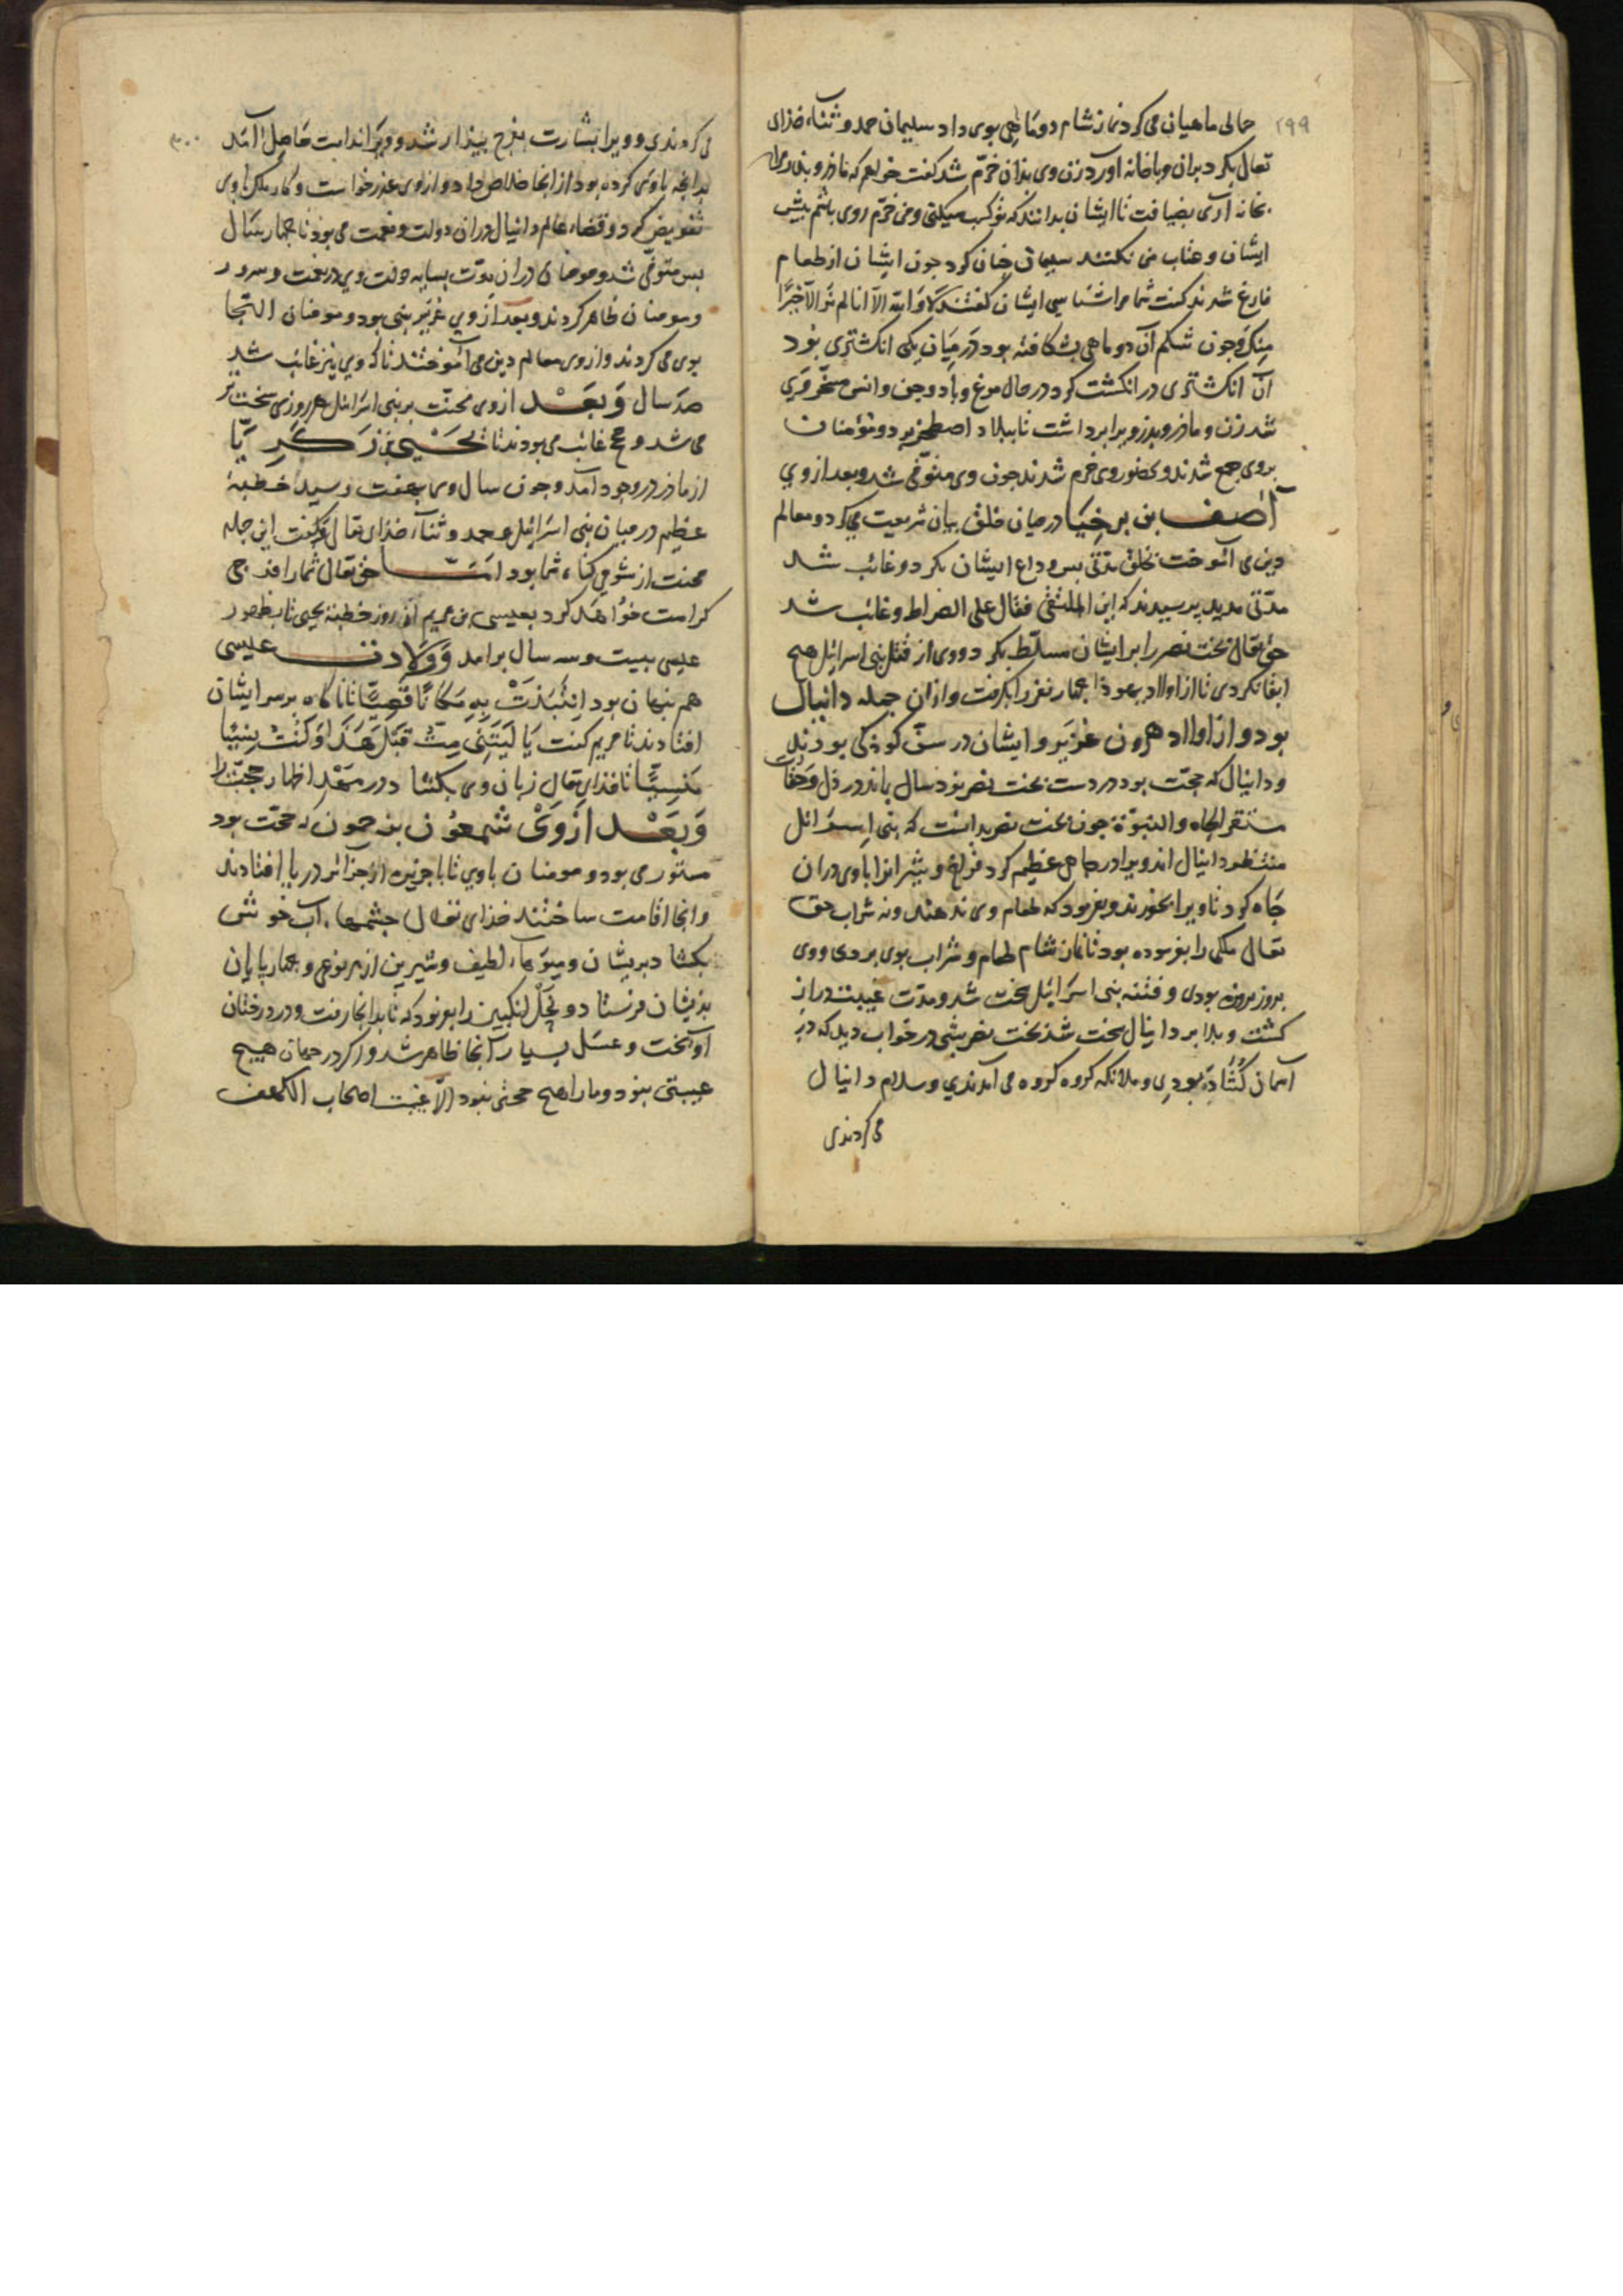 ۲۹۹
حمالی ماهیان می کرد نماز شام دو ماهی بوی داد سلیمان حمد و ثناء خذای
تعالی بکرد بران و باخانه آورد زن وی بذان خرّم شد کفت خواهم که ماذر و بذر مرا
بخانه آری بضیافت تا ایشان بدانند که تو کسب میکنی و من خرّم روی باشم بیش
ایشان و عتاب من نکنند سلیمان جنان کرد جون ایشان از طعام
فارغ شدند کفت شما مرا شناسی ایشان کفتند لا والله الا انا لم نر الا خیرًا
منک و جون شکم آن دو ماهی بشکافته بود در میان یکی انکشتری بوذ
آن انکشتری در انکشت کرد در حال مرغ و باد و جن و انس مسخّر وی
شد زن و ماذر و بذر ویرا برداشت تا ببلاد اصطخر برد و مؤمنان
بروی جمع شدند و بحضور وی خرم شدند جون وی متوفّی شد و بعد از وی
آصف بن برخیا در میان خلق بیان شریعت می کرد و معالم
دین می آموخت بخلق مدّتی بس وداع ایشان بکرد و غائب شد
مدّتی مدید پرسیدند که این الملتقی فقال علی الصراط و غائب شد
حق تعالی بخت نصر را بر ایشان مسلّط بکرد و وی از قتل بنی اسرائیل هیچ
ابقا نکردی تا از اولاد یهوذا جهار نفر را بکرفت و ازان جمله دانیال
بود و از اولاد هرون عُزَیر و ایشان در سنّ کوذکی بوذند
و دانیال که حجّت بود در دست بخت نصر نوذ سال بماند در ذل و
جون بخت نصر بدانست که بنی اسرائل
منتظر دانیال اند ویرا در جاهی عظیم کرد فراخ و شیر انرا باوی دران
جاه کرد تا ویرا بخورند و بفرمود که طعام وی ندهند و نه شراب حق
تعالی ملکی را بفرموده بود تا نماز شام طعام و شراب بوی بردی و وی
بروز بروزه بودی و فتنه بنی اسرائیل سخت شد و مدّت غیبت دراز
کشت و بلا بر دانیال سخت شد بخت نصر شبی در خواب دید که در
آسمان کشاده بودی و ملائکه کروه کروه می آمدندی و سلام دانیال
می کردندی
۳۰۰
می کردندی و ویرا بشارت بفرج بیذار شد و ویرا ندامت حاصل آمد
بدانجه باوی کرده بود از انجا خلاص داد و ازوی عذر خواست و کار ملک باوی
تفویض کرد و قضاء عالم دانیال دران دولت و نعمت می بوذ تا جهار سال
بس متوفّی شد و مومنان دران مدّت بسایه دولت وی در نعمت و سرور
و مومنان ظاهر کردند و بعد از وی عُزَیر نبی بود و مومنان التجا
بوی می کردند و ازوی معالم دین می آموختند تا که وی نیز غائب شد
صد سال وَبَعْد ازوی محنت بر بنی اسرائل هر روزی سخت تر
می شد و حجج غائب می بودند تا یَحْیی بن زَکَرِیّا
از ماذر در وجود آمد و جون سال وی بهفت رسید خطبۀ
عظیم در میان بنی اسرائیل و حمد و ثناء خذای تعالی و کفت این جمله
محنت از شومی کناه شما بود امّا حق تعالی شما را فرجی
کرامت خواهد کرد بعیسی بن مریم از روز خطبۀ یحیی تا بظهور
عیسی بیست و سه سال برامد وَوِلادت عیسی
هم پنهان بود اِنْتَبَذَتْ بِهِ مَکَانًا قَصِیًّا تا ناکاه بر سر ایشان
افتادند تا مریم کفت یَا لَیْتَنِی مِتُّ قَبْلَ هَذَا وَکُنْتُ نِسْیًا
مَنْسِیًّا تا خذای تعالی زبان وی بکشاد و در مَهْد اظهار حجّت را
وَبَعْد ازوَیْ شمعون بن حمون که حجّت بود
مستور می بود و مومنان باوی تا باجزیره از جزائر دریا افتادند
و انجا اقامت ساختند خذای تعالی جشمهاء آب خوش
بکشاد بریشان و میوَهاء لطیف و شیرین از هر نوعی و جهار پایان
بذیشان فرستاد و نحل انکبین را بفرمود که تا بدانجا رفت و در درختان
آویخت و عسل بسیار آنجا ظاهر شد و اکر در جهان هیچ
غیبتی نبود و ما را هیچ حجّتی نبود الا غیبت اصحاب الکهف